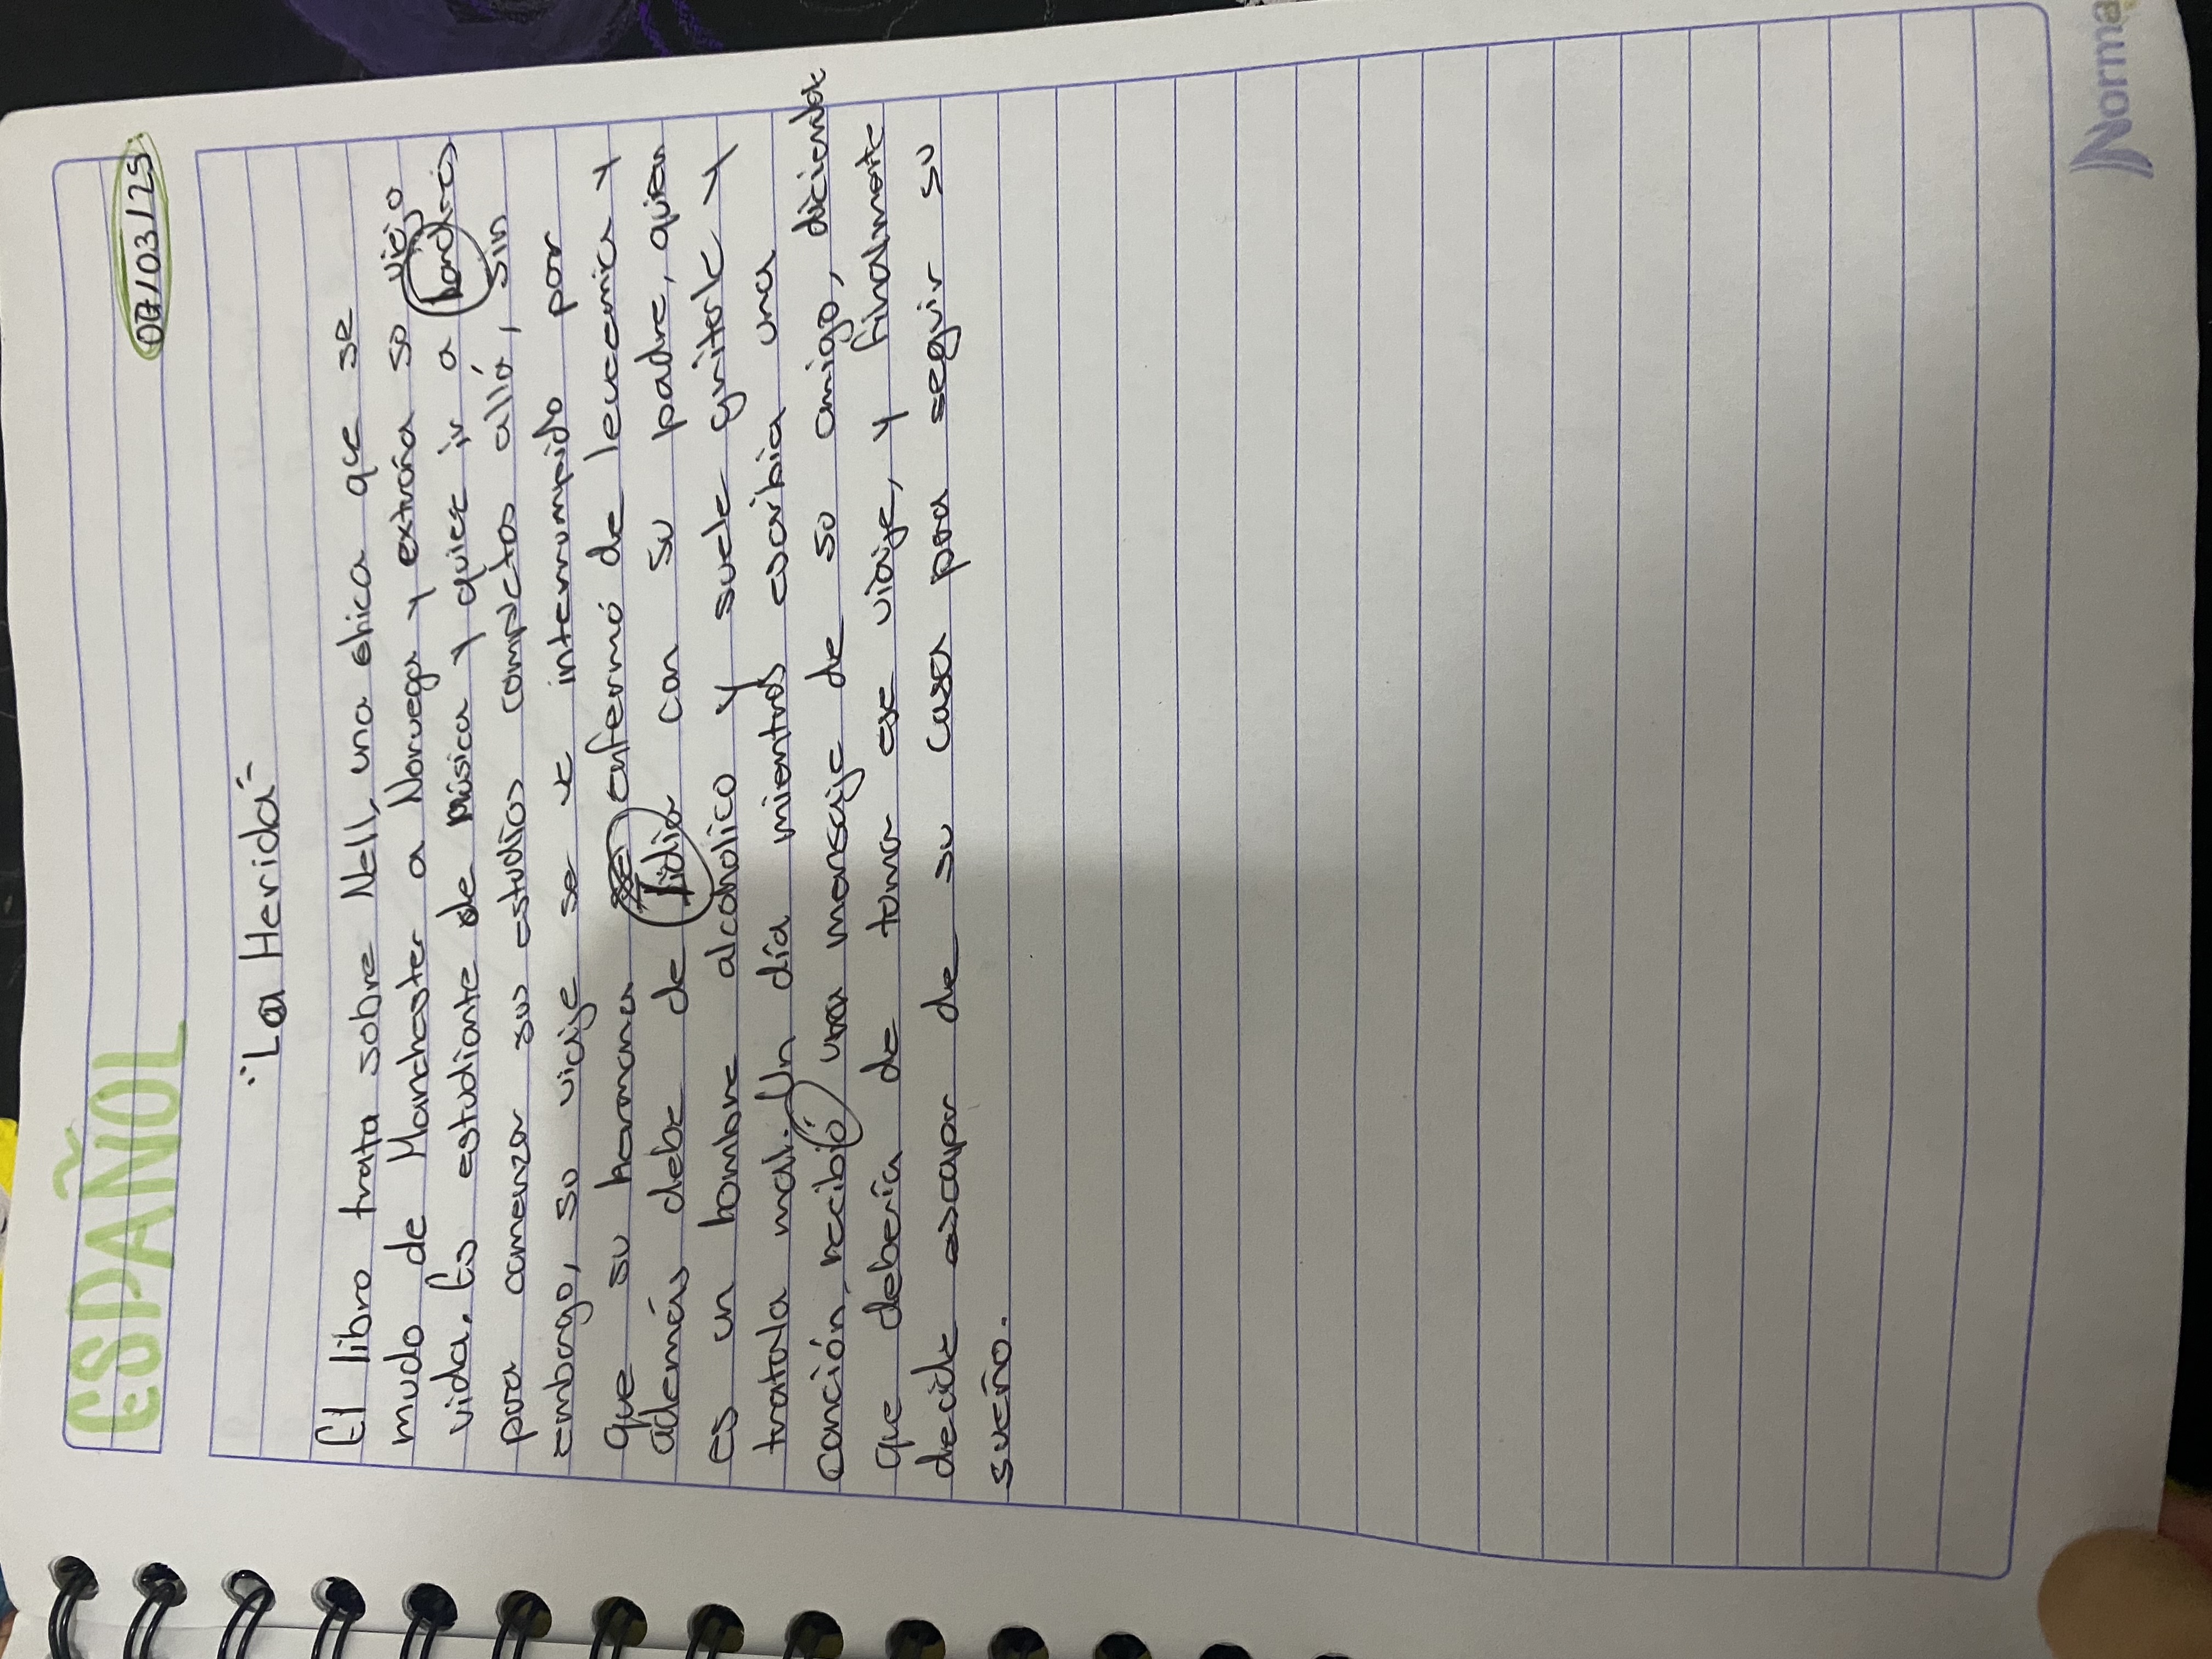 ESPAÑOL
07/03/25
"La Herida"
El libro trata sobre Nell, una chica que se
mudo de Manchester a Noruega y extraña su viejo
vida. Es estudiante de música y quiere ir a
para comenzar sus estudios completos allá, sin
embargo, su viaje se ve interrumpido por
que su hermana enfermó de leuceamia y
además debe de lidiar con su padre, quien
es un hombre alcoholico y suele gritarle y
tratala mal. Un día mientras escribia una
canción, recibió una mensaje de su amigo, diciendole
que debería de tomar ese viaje, y finalmente
decide escapar de su casa para seguir su
sueño.
Norma